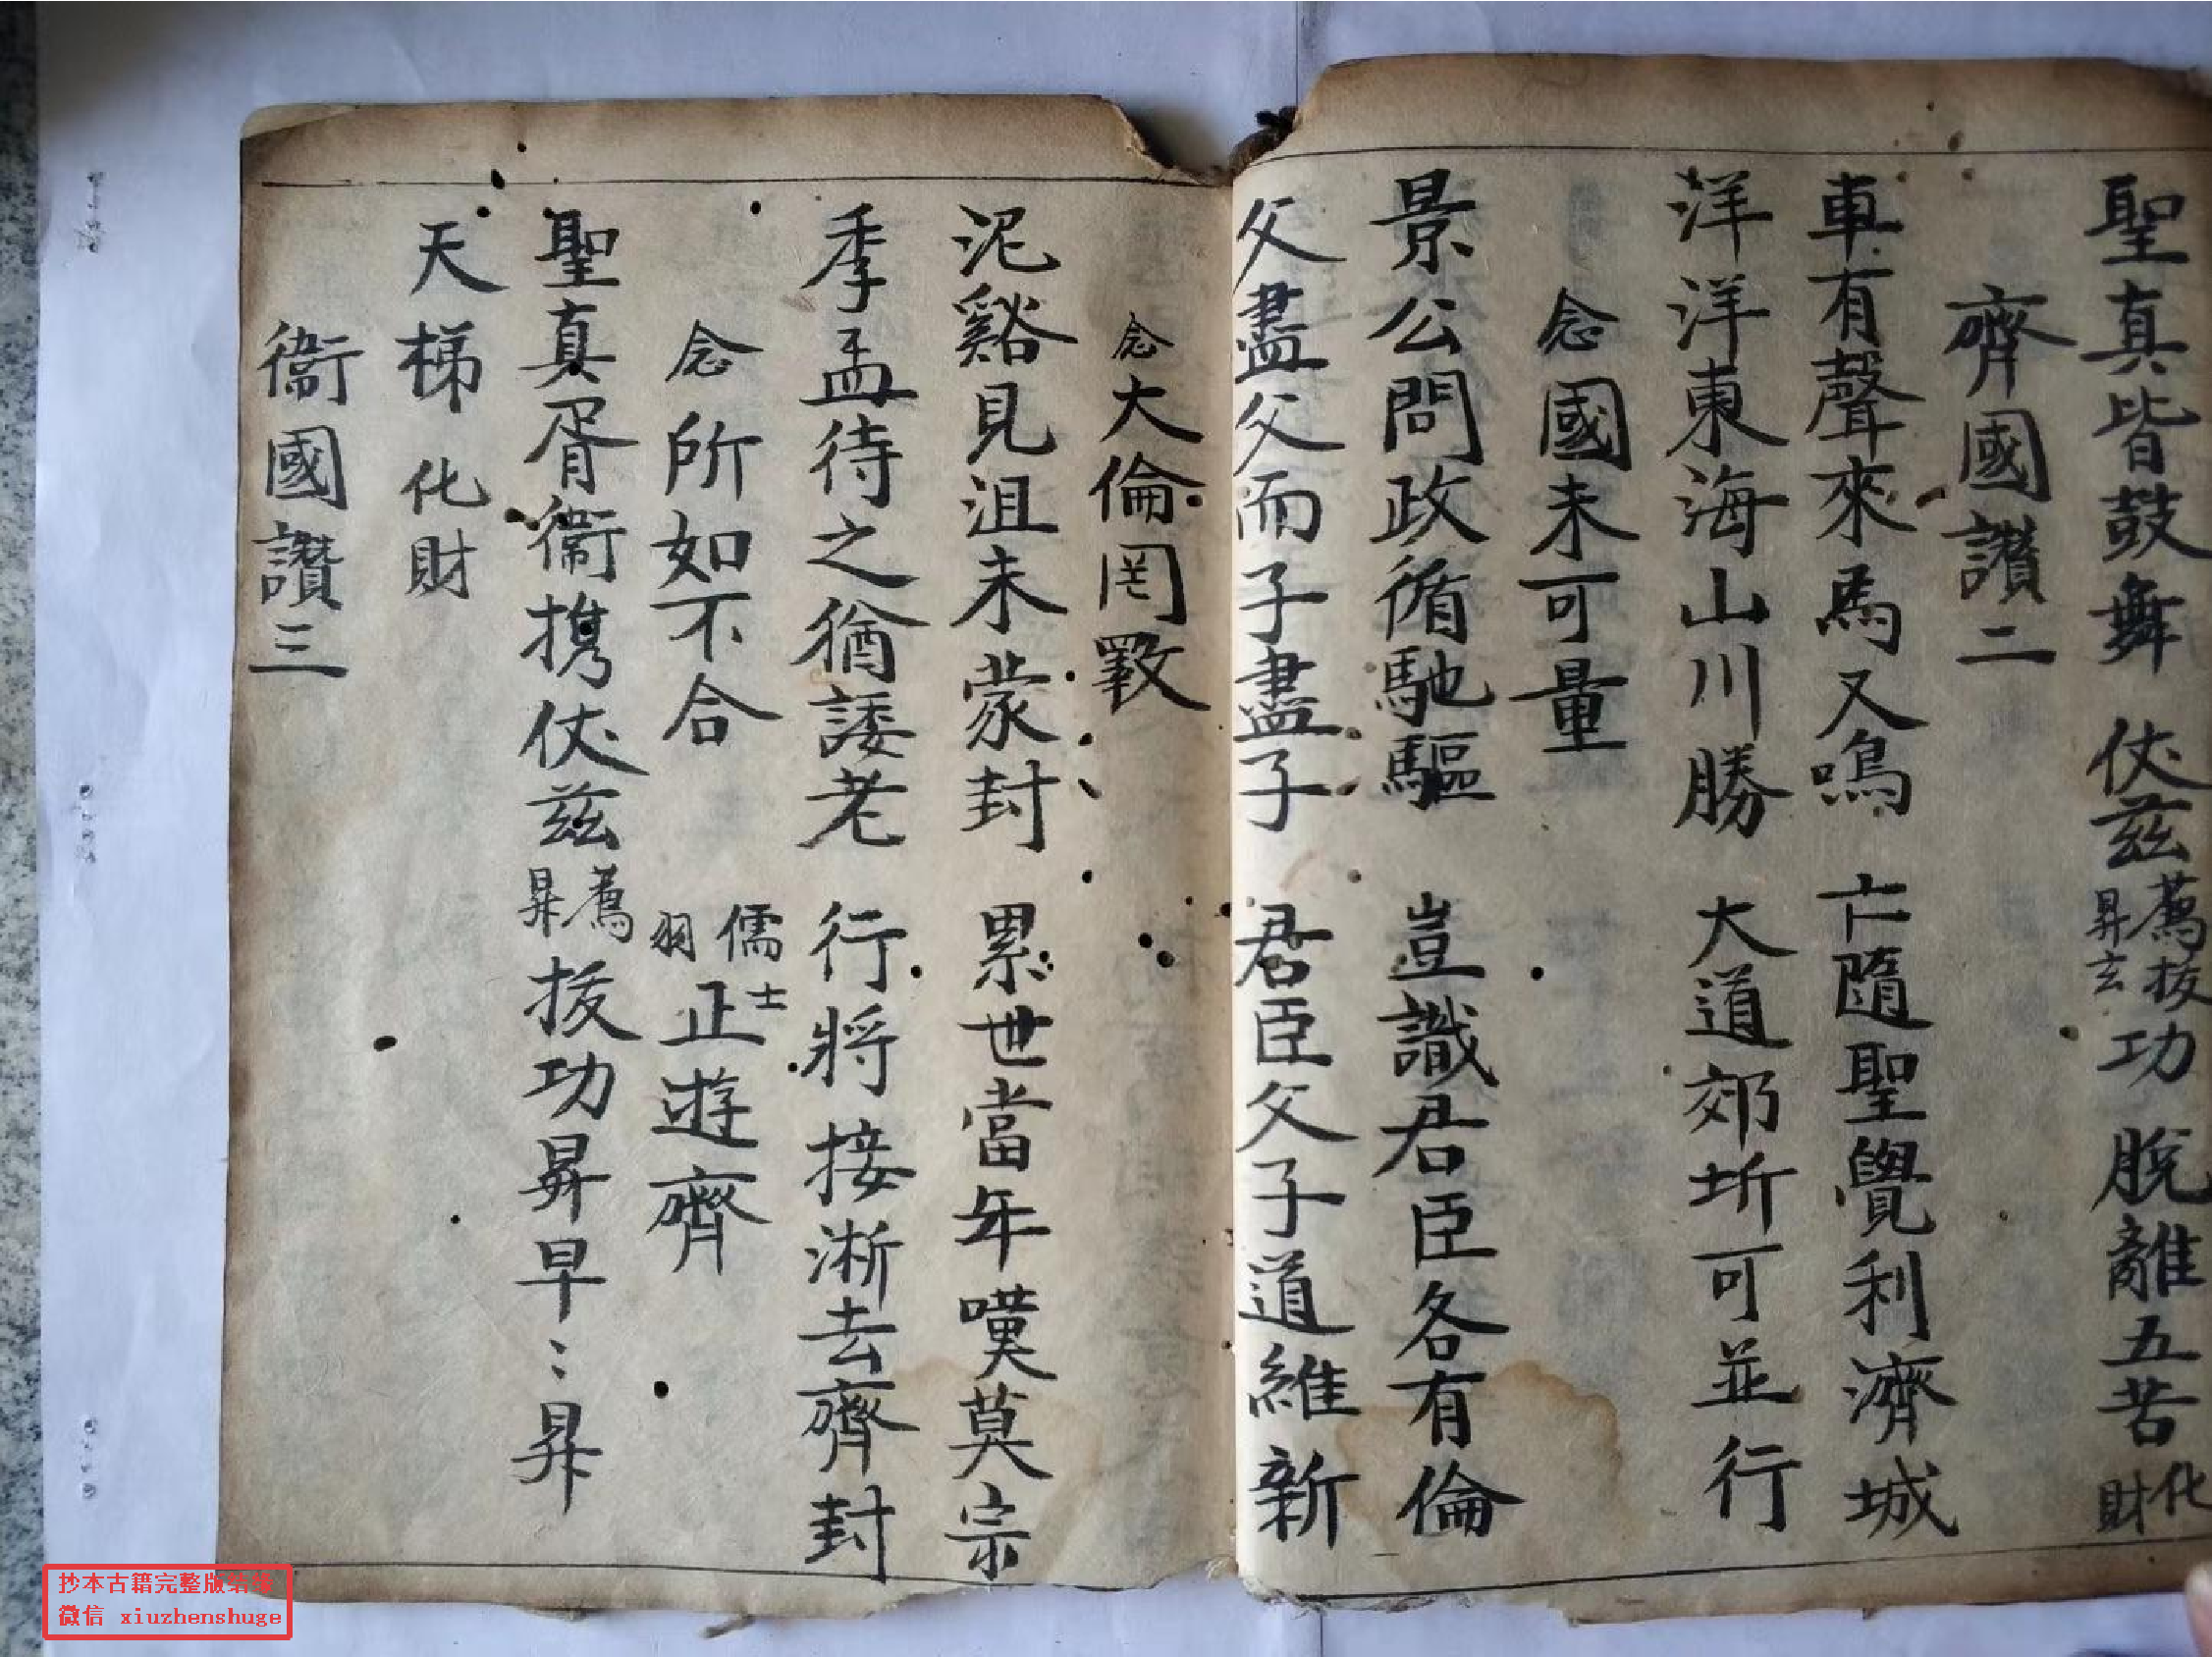 聖真皆鼓舞 仗茲薦拔昇玄功 脫離五苦 化財
齊國讚二
車有聲來馬又鳴 亡隨聖覺利濟城
洋洋東海山川勝 大道郊圻可並行
念國未可量
景公問政循馳驅 豈識君臣各有倫
父盡父而子盡子 君臣父子道維新
念大倫罔斁
泥谿見沮未蒙封 累世當年嘆莫宗
季孟待之猶諉老 行將接淅去齊封
念所如不合 儒士羽正遊齊
聖真胥衞携仗茲薦昇拔功昇早〻昇
天梯 化財
衞國讚三
抄本古籍完整版结缘
微信 xiuzhenshuge